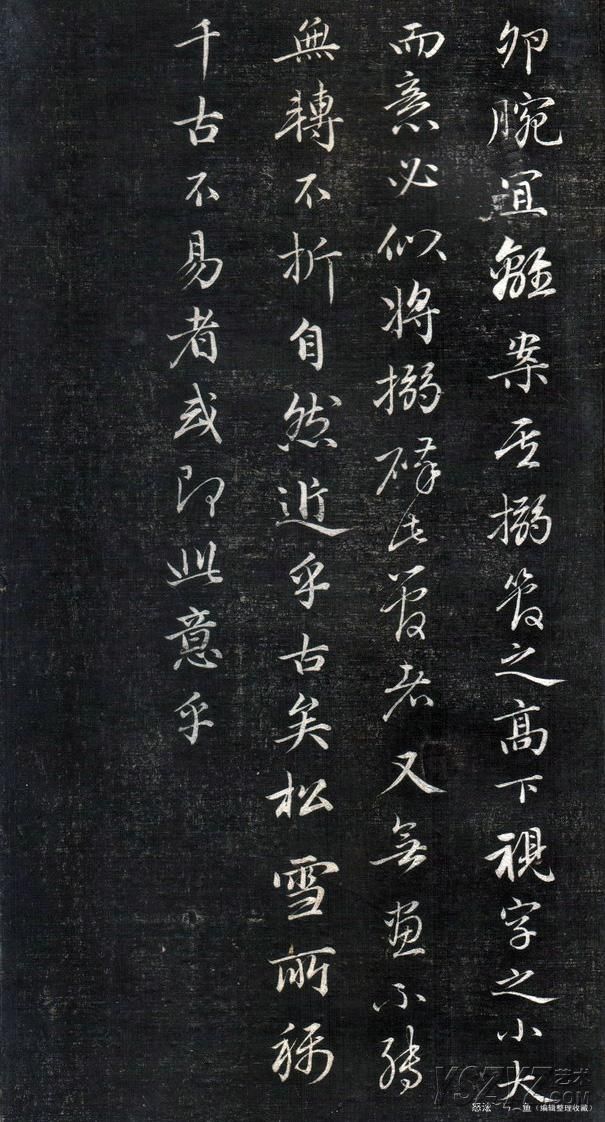 卯腕宜離案至搦管之高下視字之小大
而意必似將搦碎此管者又無畫不轉
無轉不折自然近乎古矣松雪所稱
千古不易者或即此意乎
YSZYZ艺术
一鱼（编辑整理收藏）